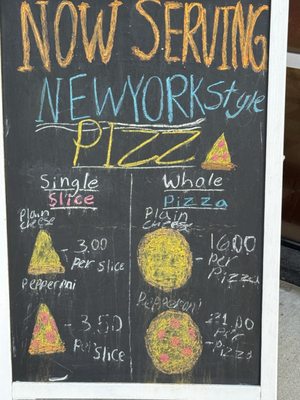 NOW SERVING
NEW YORK Style
PIZZ
Single Slice
Plain cheese
- 3.00 Per slice
Pepperoni
- 3.50 Per slice
Whole Pizza
Plain cheese
- 16.00 - per Pizza
Pepperoni
- 21.00 Per Pizza